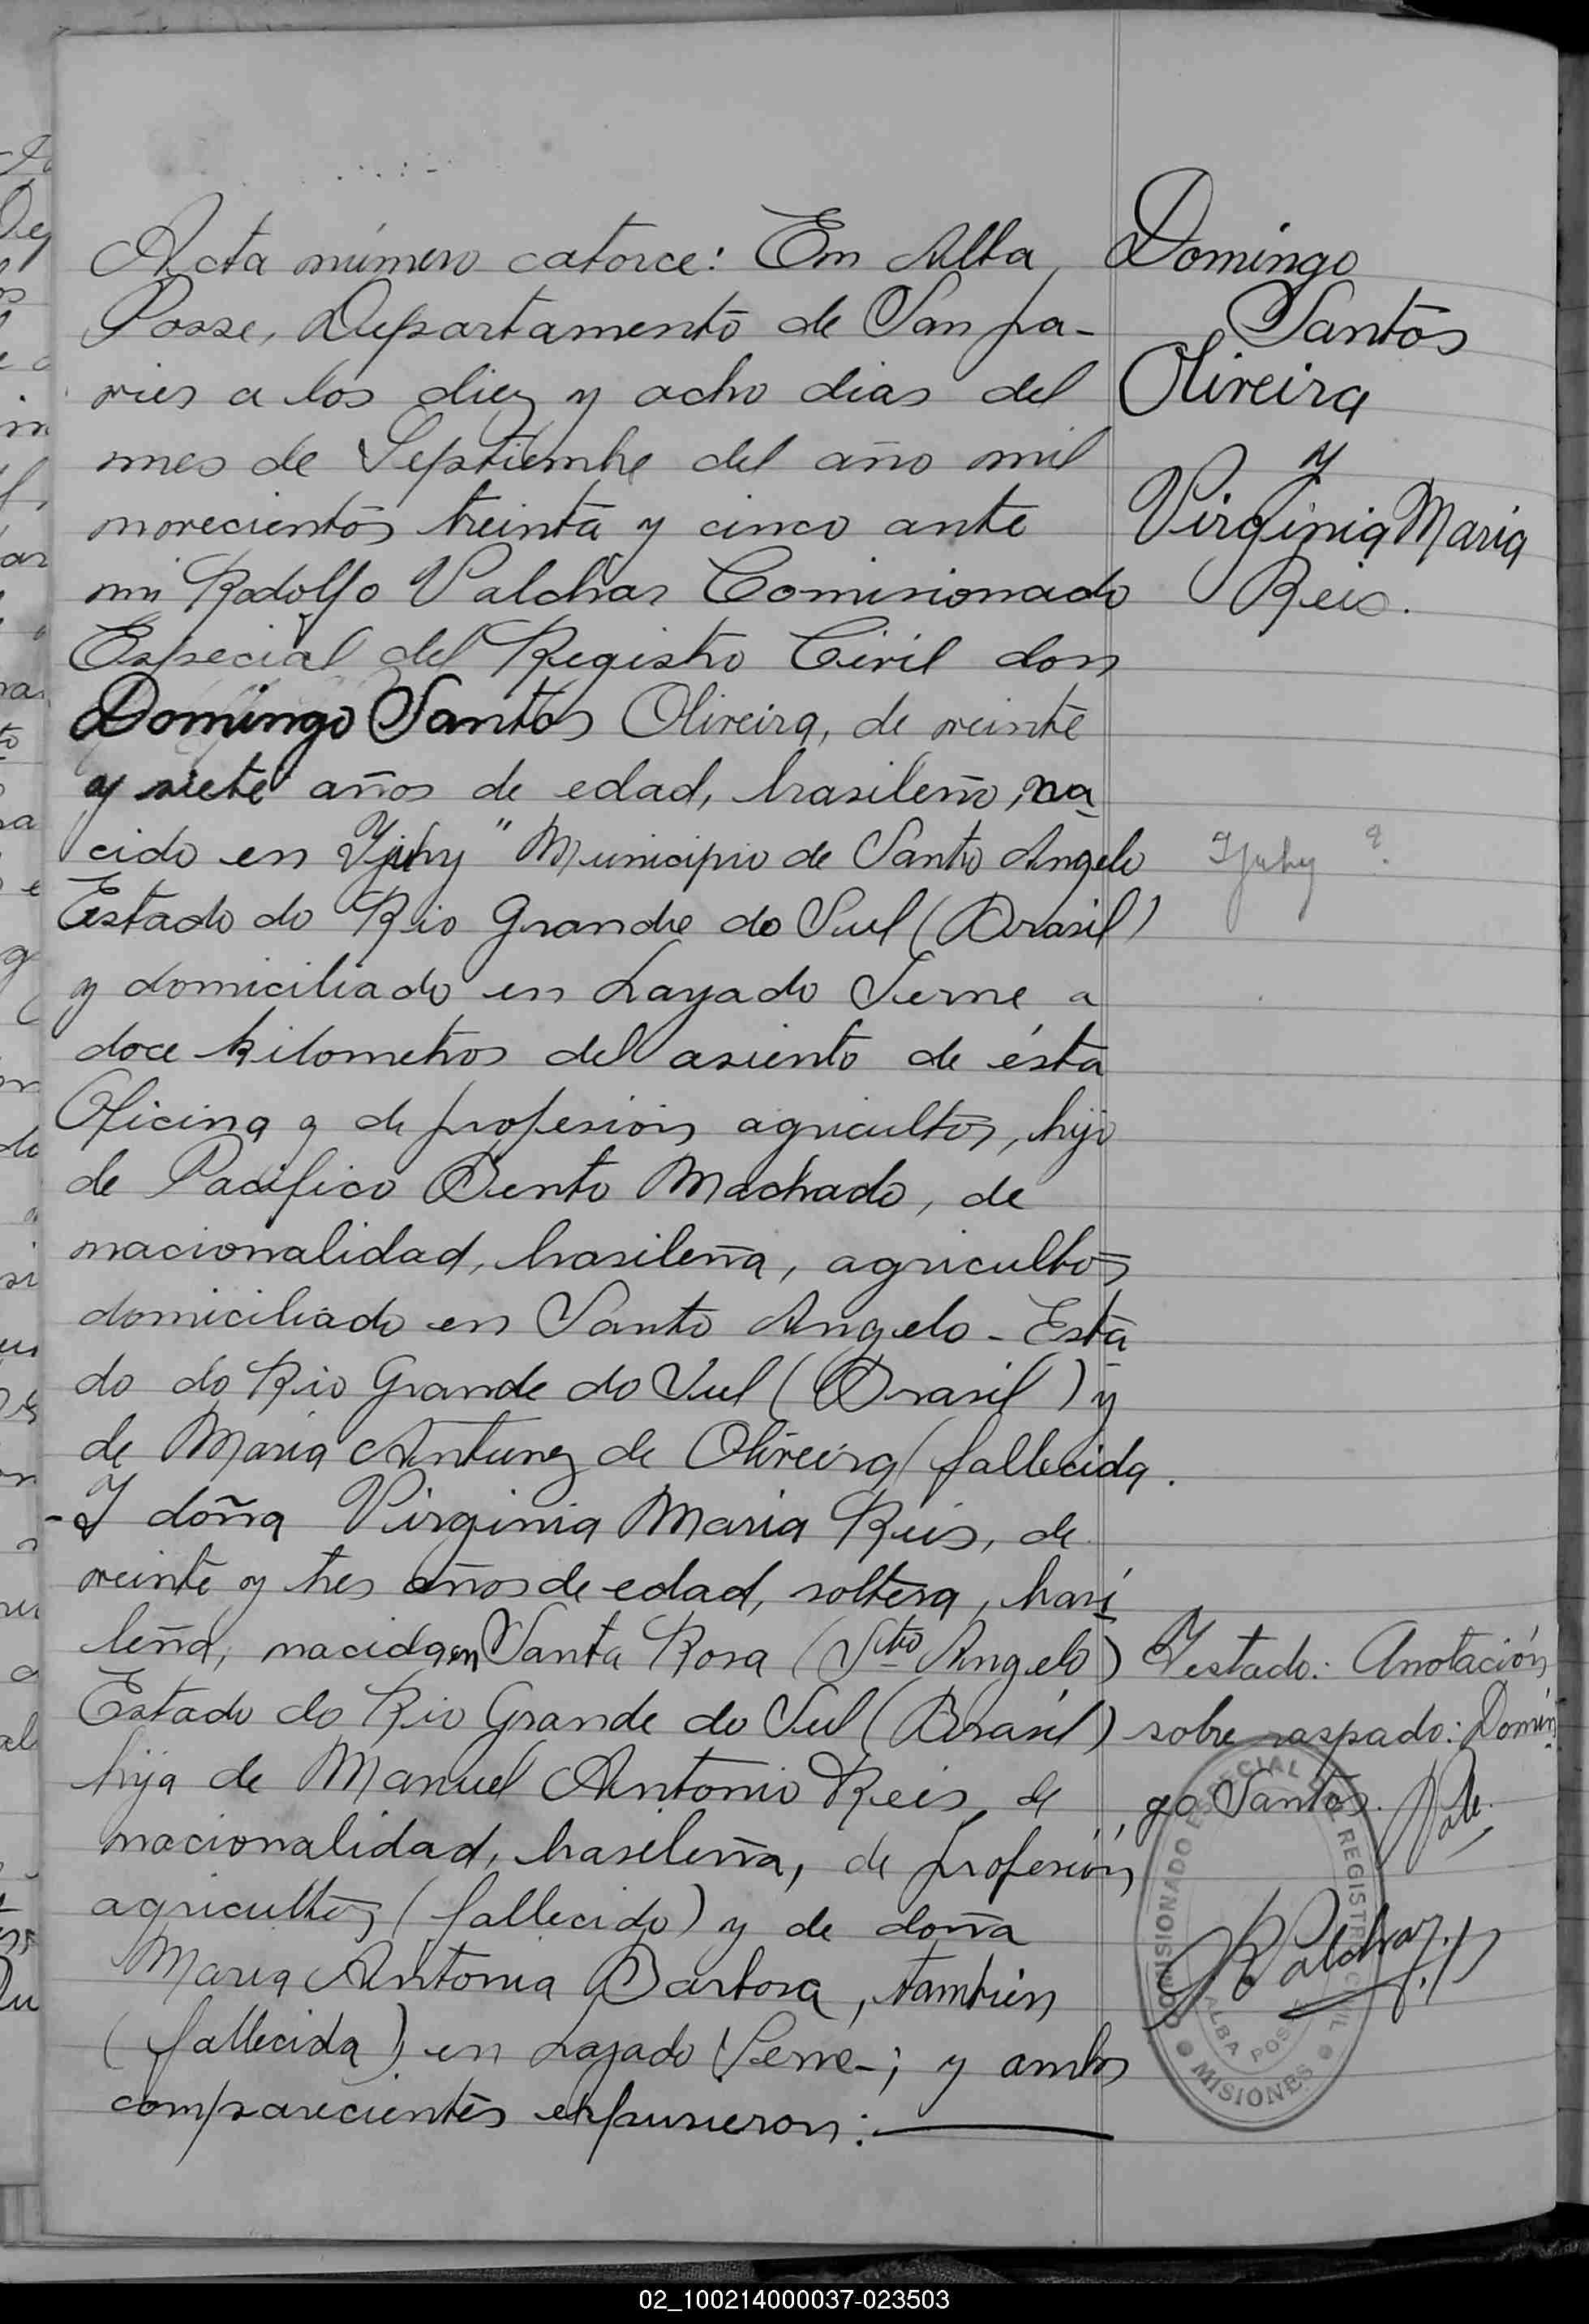 Acta número catorce: En Alba
Posse, Departamento de San Ja-
vier a los diez y ocho dias del
mes de Septiembre del año mil
novecientos treinta y cinco ante
mi Rodolfo Valchar Comisionado
Especial del Registro Civil don
Domingo Santos Oliveira, de veinte
y siete años de edad, brasileño, na
cido en Yjuhy" Municipio de Santo Angelo
Estado do Rio Grande do Sul (Brasil)
y domiciliado en Layado Serne a
doce kilometros del asiento de ésta
Oficina y de profesión agricultor, hijo
de Pacifico Bento Machado, de
nacionalidad, brasileña, agricultor
domiciliado en Santo Angelo - Esta
do do Rio Grande do Sul (Brasil) y
de Maria Antunez de Oliveira (fallecida.
-Y doña Virginia Maria Reis, de
veinte y tres años de edad, soltera, brasi
leña, nacida en Santa Rosa (Sto Angelo)
Estado do Rio Grande do Sul (Brasil)
hija de Manuel Antonio Reis, de
nacionalidad, brasileña, de profesión
agricultor (fallecido) y de doña
Maria Antonia Barbosa, también
(fallecida) en Layado Serne-; y ambos
comparecientes expusieron:
Domingo
Santos
Oliveira
y
Virginia Maria
Reis.
Yjuhy ?
Testado: Anotación
sobre raspado: Domin
go Santos. Vale.
RValchar
COMISIONADO ESPECIAL DEL REGISTRO CIVIL
ALBA POSSE
MISIONES
02_100214000037-023503